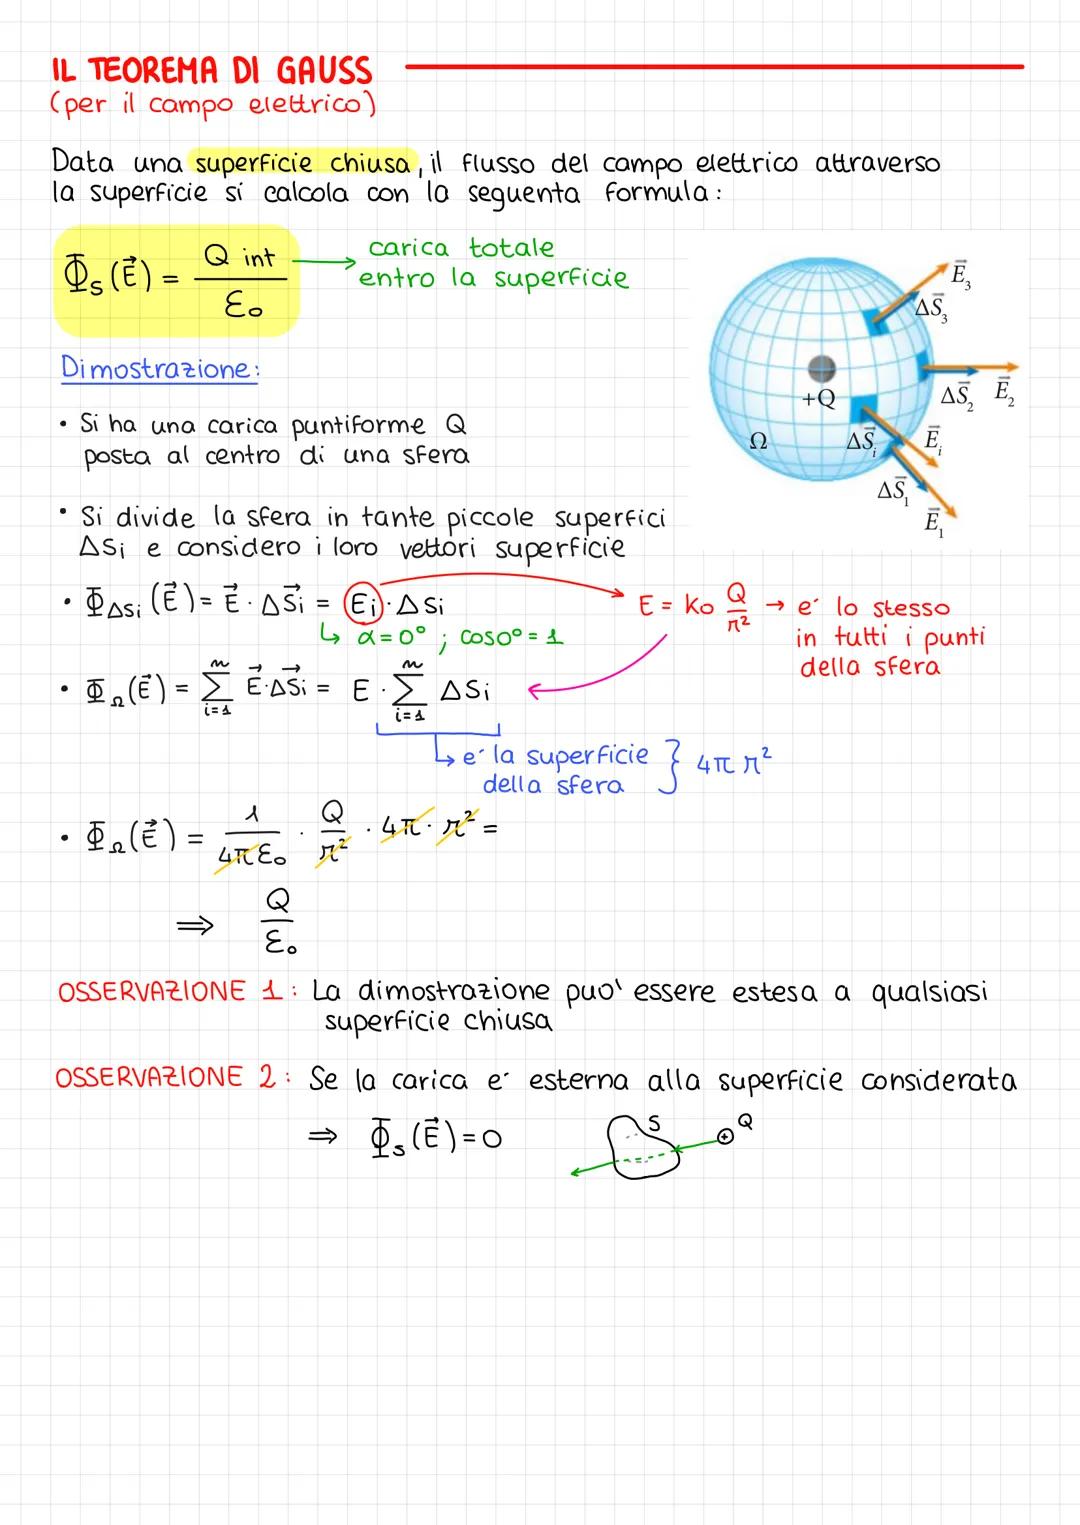 IL TEOREMA DI GAUSS
(per il campo elettrico)
Data una superficie chiusa, il flusso del campo elettrico attraverso
la superficie si calcola con la seguenta formula:
Φs (E⃗) = Q int / ε₀ → carica totale
entro la superficie
Dimostrazione:
• Si ha una carica puntiforme Q
posta al centro di una sfera
• Si divide la sfera in tante piccole superfici
ΔSi e considero i loro vettori superficie
E⃗₃
ΔS⃗₃
+Q
ΔS⃗₂ E⃗₂
Ω
ΔS⃗i
E⃗i
ΔS⃗₁
E⃗₁
• ΦΔSi (E⃗) = E⃗ · ΔS⃗i = Ei · ΔSi
↳ α = 0° ; cos0° = 1
E = Ko Q/r² → e' lo stesso
in tutti i punti
della sfera
• ΦΩ(E⃗) = Σ(i=1, n) E⃗·ΔS⃗i = E · Σ(i=1, n) ΔSi
↳ e' la superficie
della sfera } 4π r²
• ΦΩ(E⃗) = 1/4πε₀ · Q/r² · 4π · r² =
⇒ Q/ε₀
OSSERVAZIONE 1: La dimostrazione puo' essere estesa a qualsiasi
superficie chiusa
OSSERVAZIONE 2: Se la carica e' esterna alla superficie considerata
⇒ Φs (E⃗) = 0
S
Q